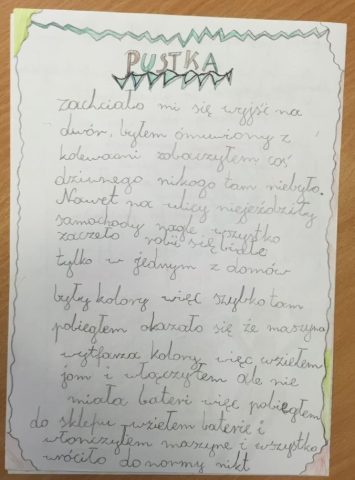 PUSTKA
zachciało mi się wyjść na
dwór, byłem ómuwiony z
kolewaami zobaczyłem coś
dziwnego nikogo tam niebyło.
Nawet na ulicy niejeździły
samochody nagle wszystko
zaczeło robić się białe
tylko w jednym z domów
były kolory więc szybko tam
pobiegłem okazało się że maszyna
wytfarza kolory, więc wziełem
jom i włączyłem ale nie
miała bateri więc pobiegłem
do sklepu wziełem baterie i
włonczyłem maszyne i wszystko
wróciło do normy nikt